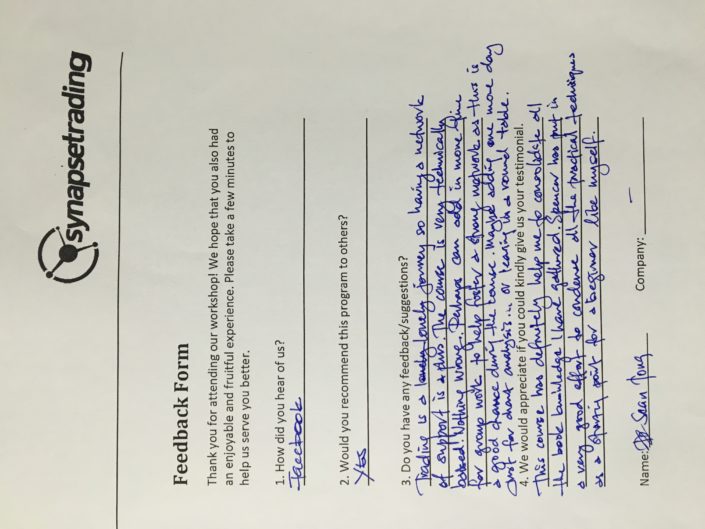 synapsetrading
Feedback Form
Thank you for attending our workshop! We hope that you also had
an enjoyable and fruitful experience. Please take a few minutes to
help us serve you better.
1. How did you hear of us?
Facebook
2. Would you recommend this program to others?
Yes
3. Do you have any feedback/suggestions?
Trading is a lonely journey so having a network
of support is a plus. The course is very technically
based. Nothing wrong. Perhaps can add in more time
for group work to help foster a strong network as this is
a good chance during the course. Maybe adding one more day
just for chart analysis... or tearing in a round table.
4. We would appreciate if you could kindly give us your testimonial.
This course has definitely help me to consolidate all
the book knowledge I have gathered. Spencer has put in
a very good effort to condense all the practical techniques
as a starting point for a beginner like myself.
Name: Sean Company: –